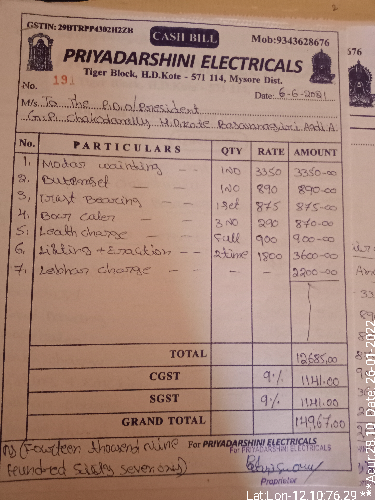 GSTIN: 29BTRPP4302H2ZB
CASH BILL
Mob:9343628676
PRIYADARSHINI ELECTRICALS
Tiger Block, H.D.Kote - 571 114, Mysore Dist.
No. 191
Date: 6-6-2021
M/s To The P.D.O/President
G.P. H.D.Kote
No. PARTICULARS QTY RATE AMOUNT
1, Motar wainting — 1NO 3350 3350-00
2. — 1NO 890 890-00
3, Trast Bearing — 1Set 875 875-00
4, — 3NO 290 870-00
5, Leath charge — full 900 900-00
6, Lifting + Eraction — 2time 1800 3600-00
7, Lebhar charge — — — 2200-00
TOTAL 12685.00
CGST 9% 1141.00
SGST 9% 1141.00
GRAND TOTAL 14967.00
(Fourteen thousand nine
hundred sixty seven only)
For PRIYADARSHINI ELECTRICALS
For PRIYADARSHINI ELECTRICALS
Proprietor
576
Lat Lon-12.1076.29 ***
Date: 26-01-2022